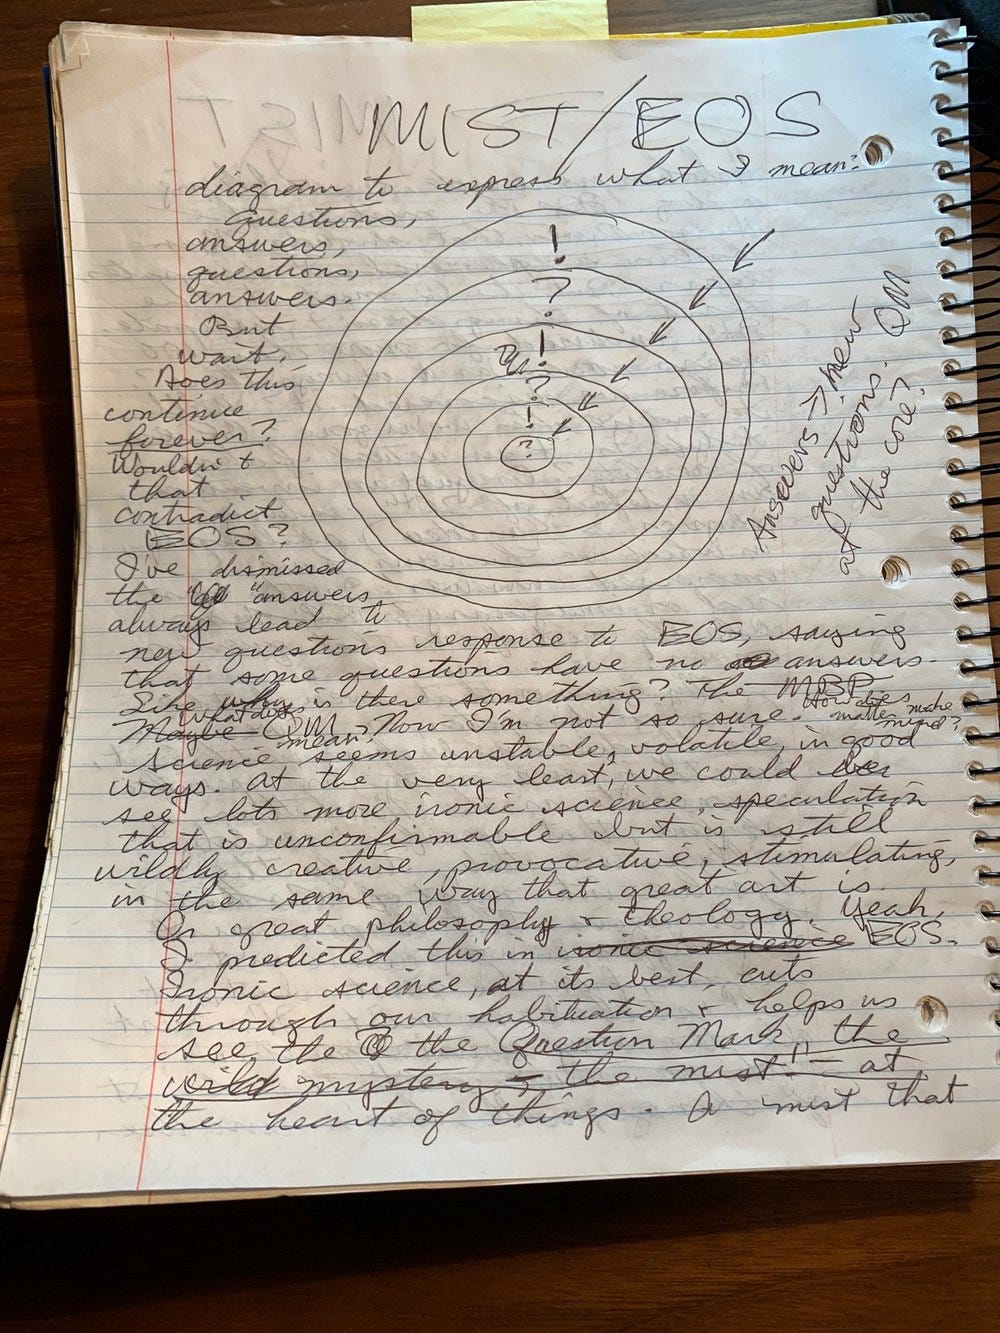 MIST/EOS
diagram to express what I mean:
questions,
answers,
questions,
answers.
But
wait.
Does this
continue
forever?
Wouldn't
that
contradict
EOS?
!
?
!
?
!
?
Answers > new
questions. QM
at the core?
I've dismissed
the "answers
always lead to
new questions response to EOS, saying
that some questions have no answers.
Like why is there something? The MBP
what does how does
Maybe QM. Now I'm not so sure. matter make
mean? mind?
Science seems unstable, volatile, in good
ways. At the very least, we could
see lots more ironic science, speculation
that is unconfirmable but is still
wildly creative, provocative, stimulating,
in the same way that great art is.
Or great philosophy + theology. Yeah,
I predicted this in ironic science EOS.
Ironic science, at its best, cuts
through our habituation + helps us
see the the Question Mark, the
wild mystery – the mist!" – at
the heart of things. A mist that